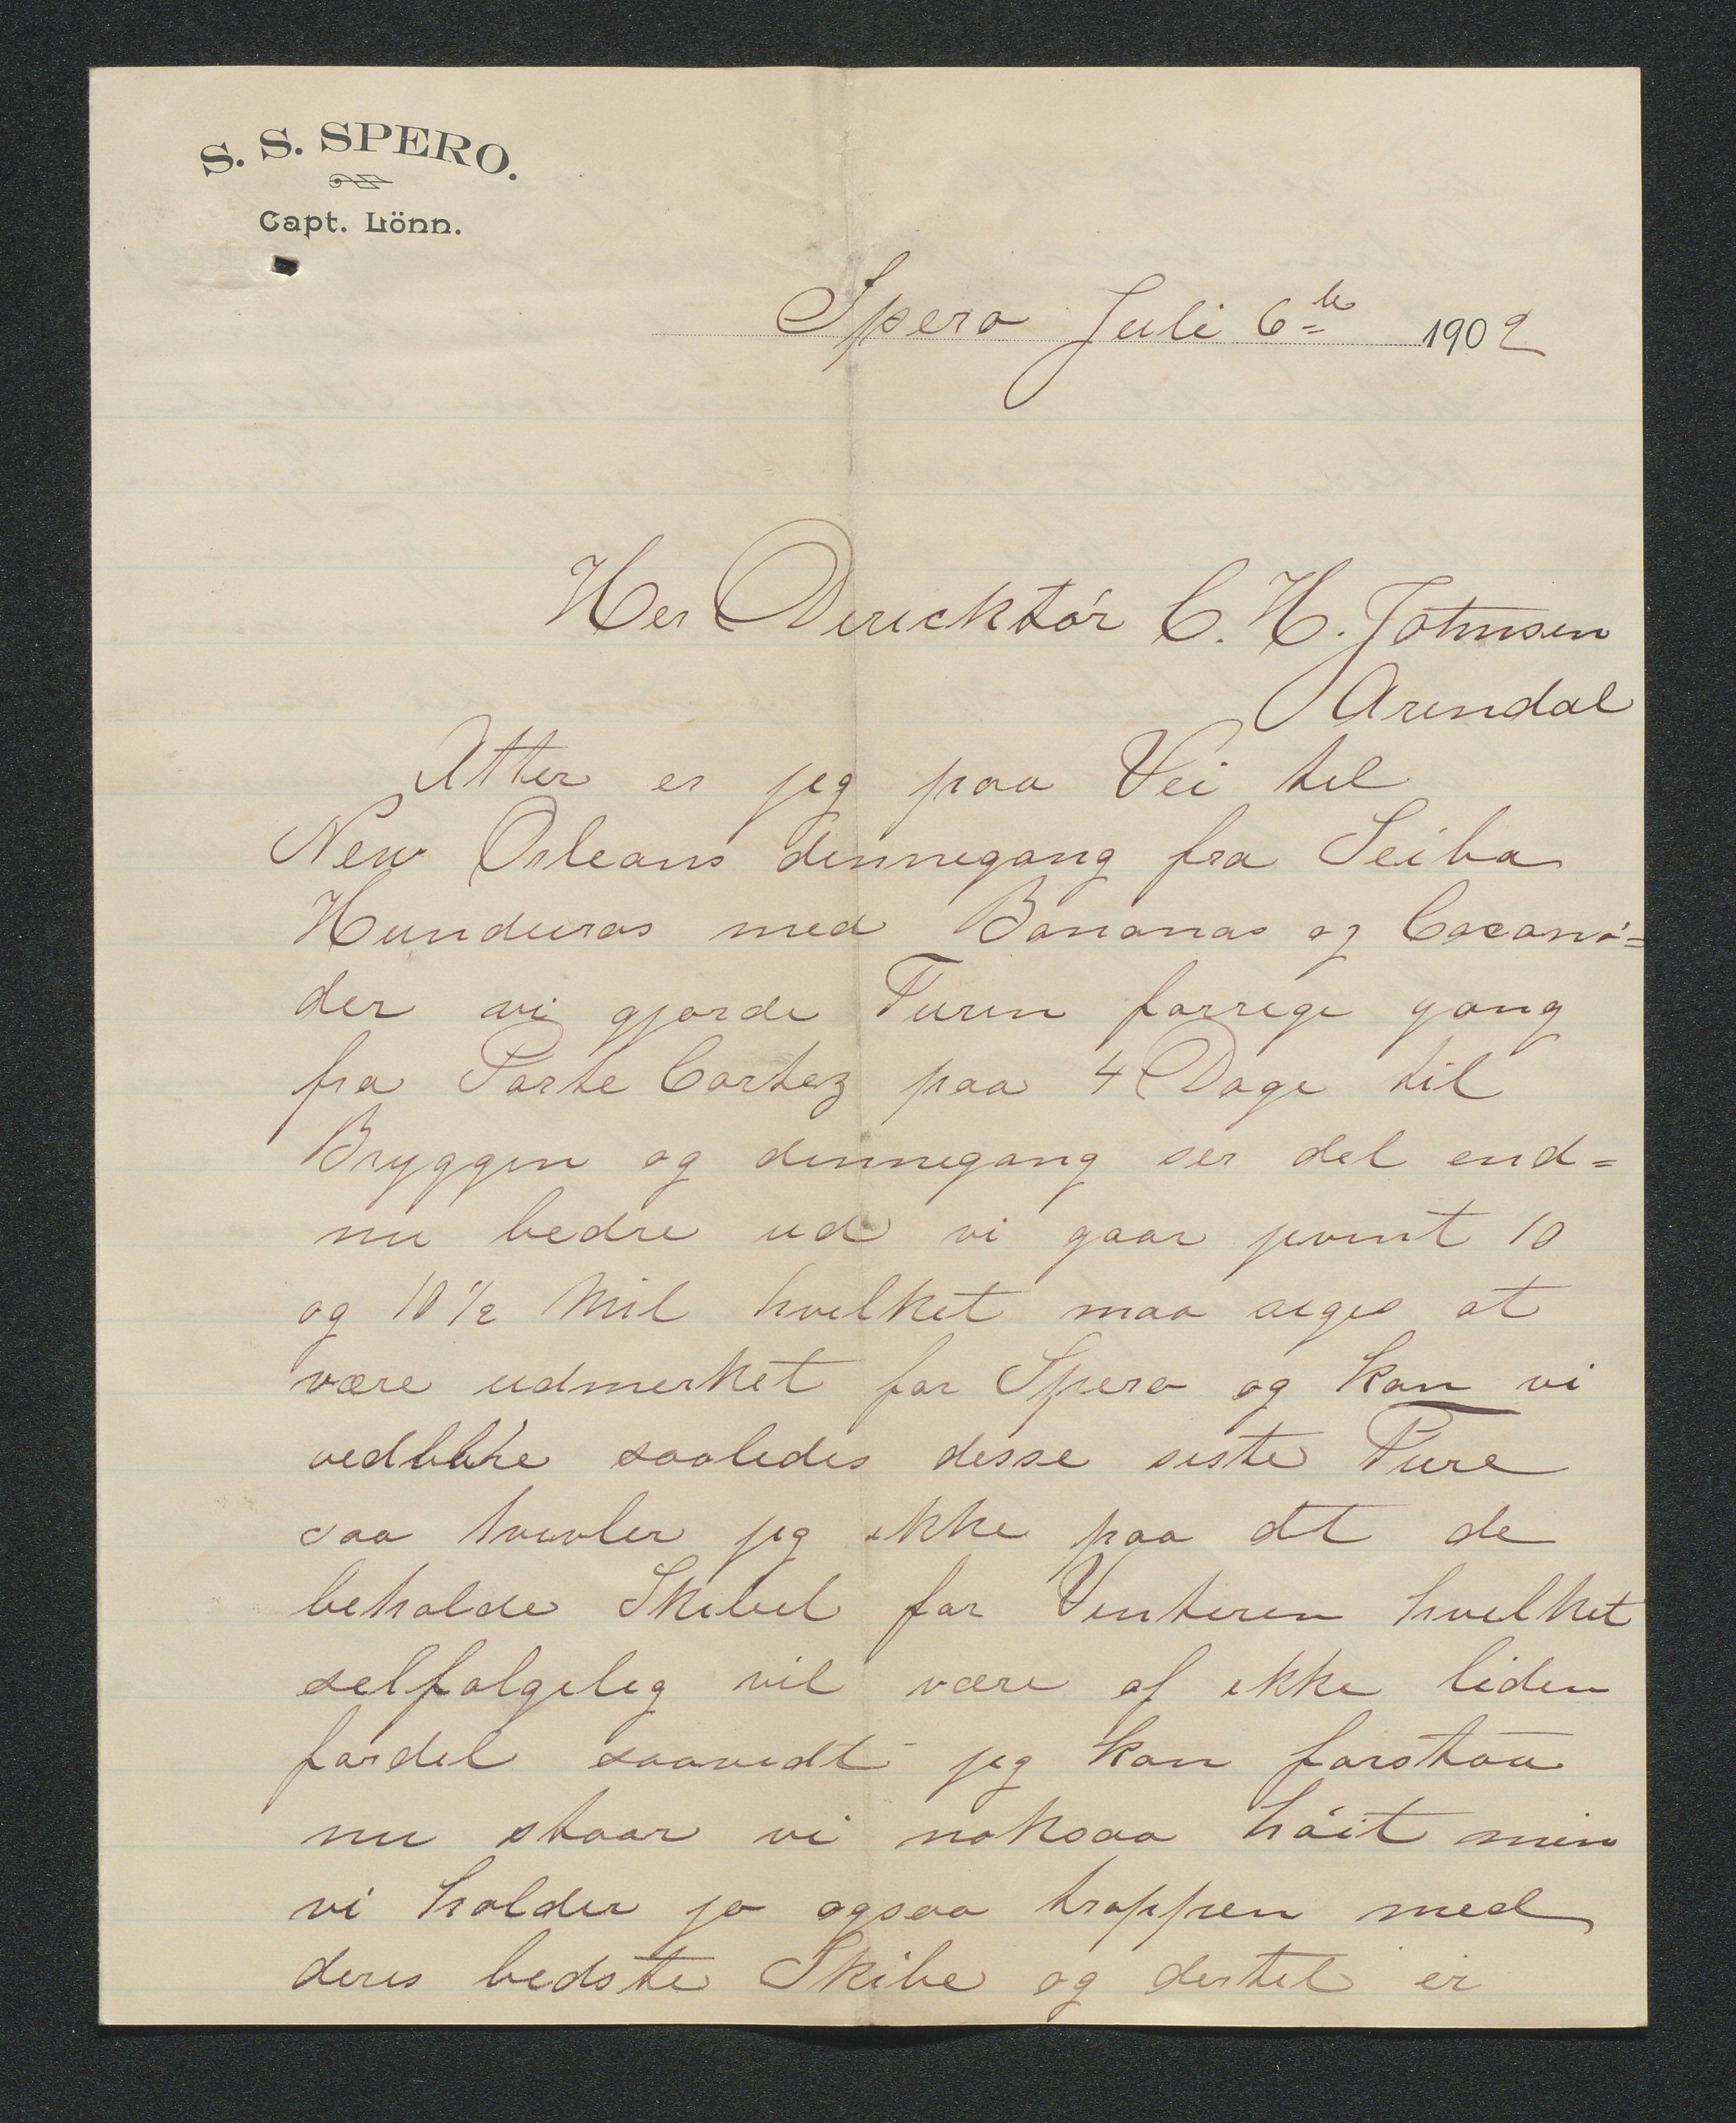 S. S. SPERO.
Capt. Lönn.
Spero Juli 6te 1902
Her Direcktör C. H. Johnsen
Arendal
Atter er jeg paa Vei til
New Orleans dennegang fra Seiba
Hunduras med Bananas og Cocanö=
der vi gjorde Turen forrige gang
fra Porte Cortez paa 4 Dage til
Bryggen og dennegang ser det end=
nu bedre ud vi gaar jevnt 10
og 10 1/2 Mil hvilket maa siges at
være udmerket for Spero og kan vi
vedblive saaledes desse siste Ture
saa tvivler jeg ikke paa at de
beholde Skibet for Vinteren hvilket
selfølgelig vil være af ikke liden
fordel saavidt jeg kan forstaa
nu staar vi noksaa höit men
vi holder jo ogsaa troppen med
deres bedste Skibe og dertil er